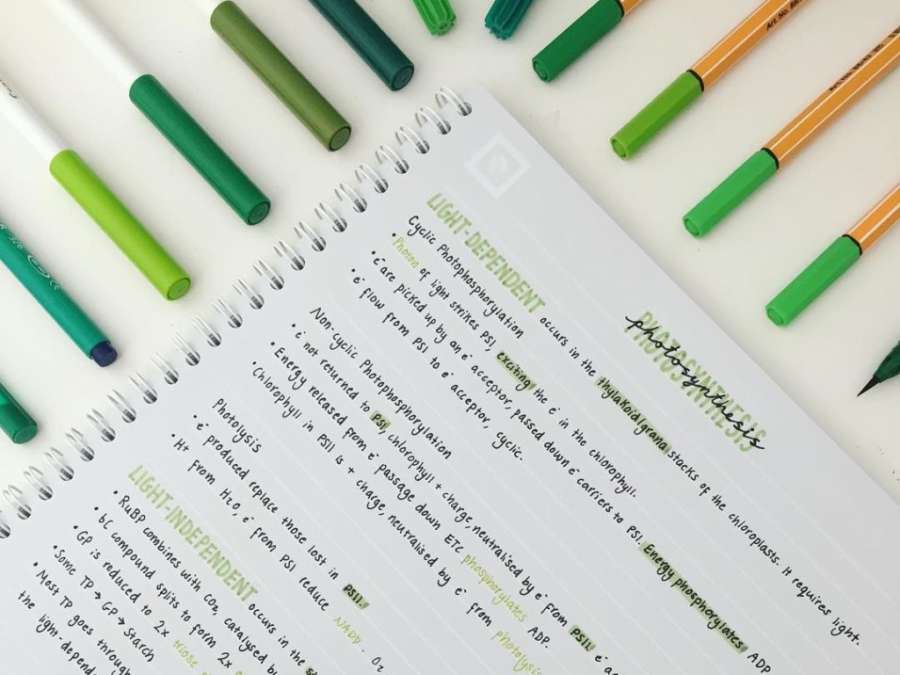 PHOTOSYNTHESIS
photosynthesis
LIGHT-DEPENDENT occurs in the thylakoid/grana stacks of the chloroplasts. It requires light.
Cyclic Photophosphorylation
• Photon of light strikes PSI, exciting the e⁻ in the chlorophyll.
• e⁻ are picked up by an e⁻ acceptor, passed down e⁻ carriers to PSI. Energy phosphorylates ADP
• e⁻ flow from PSI to e⁻ acceptor, cyclic.
Non-cyclic Photophosphorylation
• e⁻ not returned to PSI, chlorophyll + charge, neutralised by e⁻ from PSII. e⁻
• Energy released from e⁻ passage down ETC phosphorylates ADP.
• Chlorophyll in PSII is + charge, neutralised by e⁻ from photolysis
Photolysis
• e⁻ produced replace those lost in PSII.
• H+ from H₂O, e⁻ from PSI reduce NADP. O₂
LIGHT-INDEPENDENT occurs in the
• RuBP combines with CO₂, catalysed by
• 6C compound splits to form 2x
• GP is reduced to 2x triose
• Some TP → GP → Starch
• Most TP goes through
the light-depend